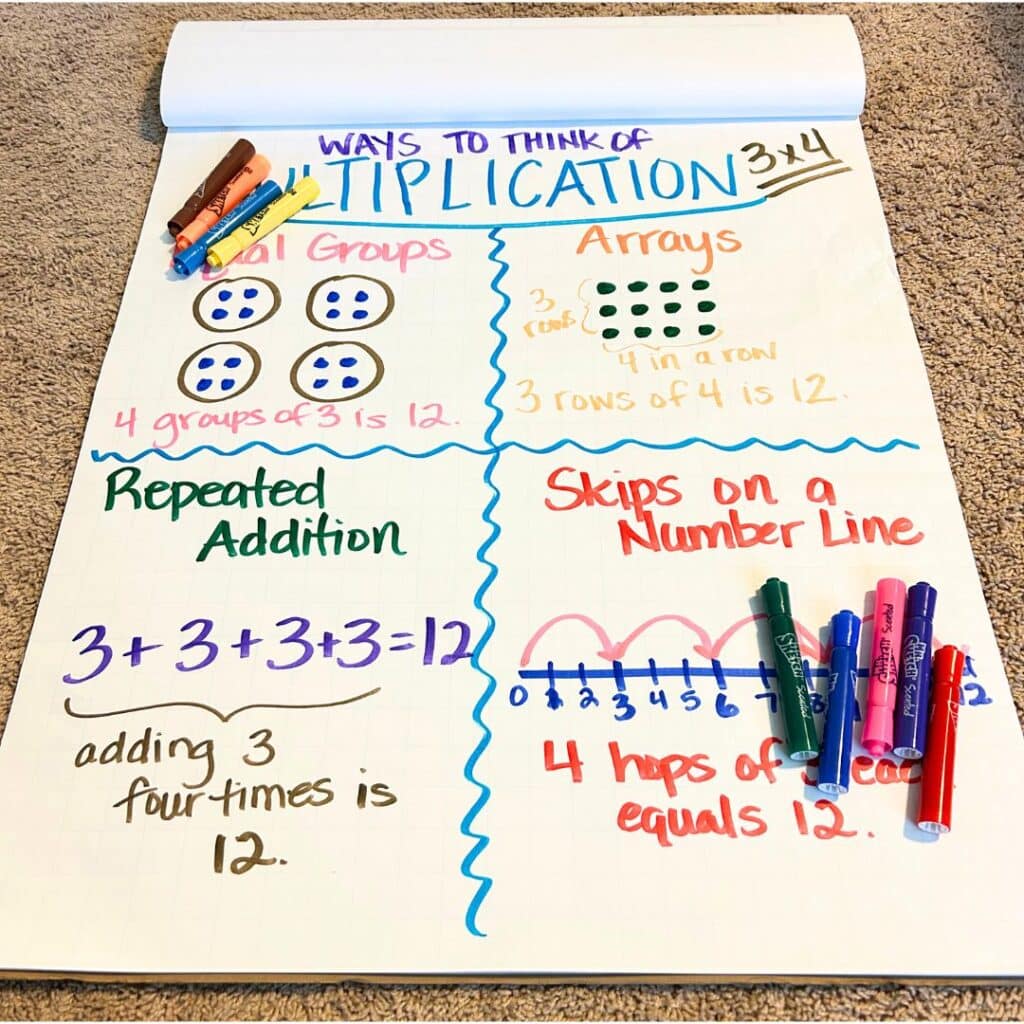 WAYS TO THINK OF
LTIPLICATION 3x4
Groups
4 groups of 3 is 12.
Arrays
3
rows
4 in a row
3 rows of 4 is 12.
Repeated
Addition
3+3+3+3=12
adding 3
four times is
12.
Skips on a
Number Line
0 1 2 3 4 5 6 7 8 12
4 hops of
equals 12.
SKETCH Scented